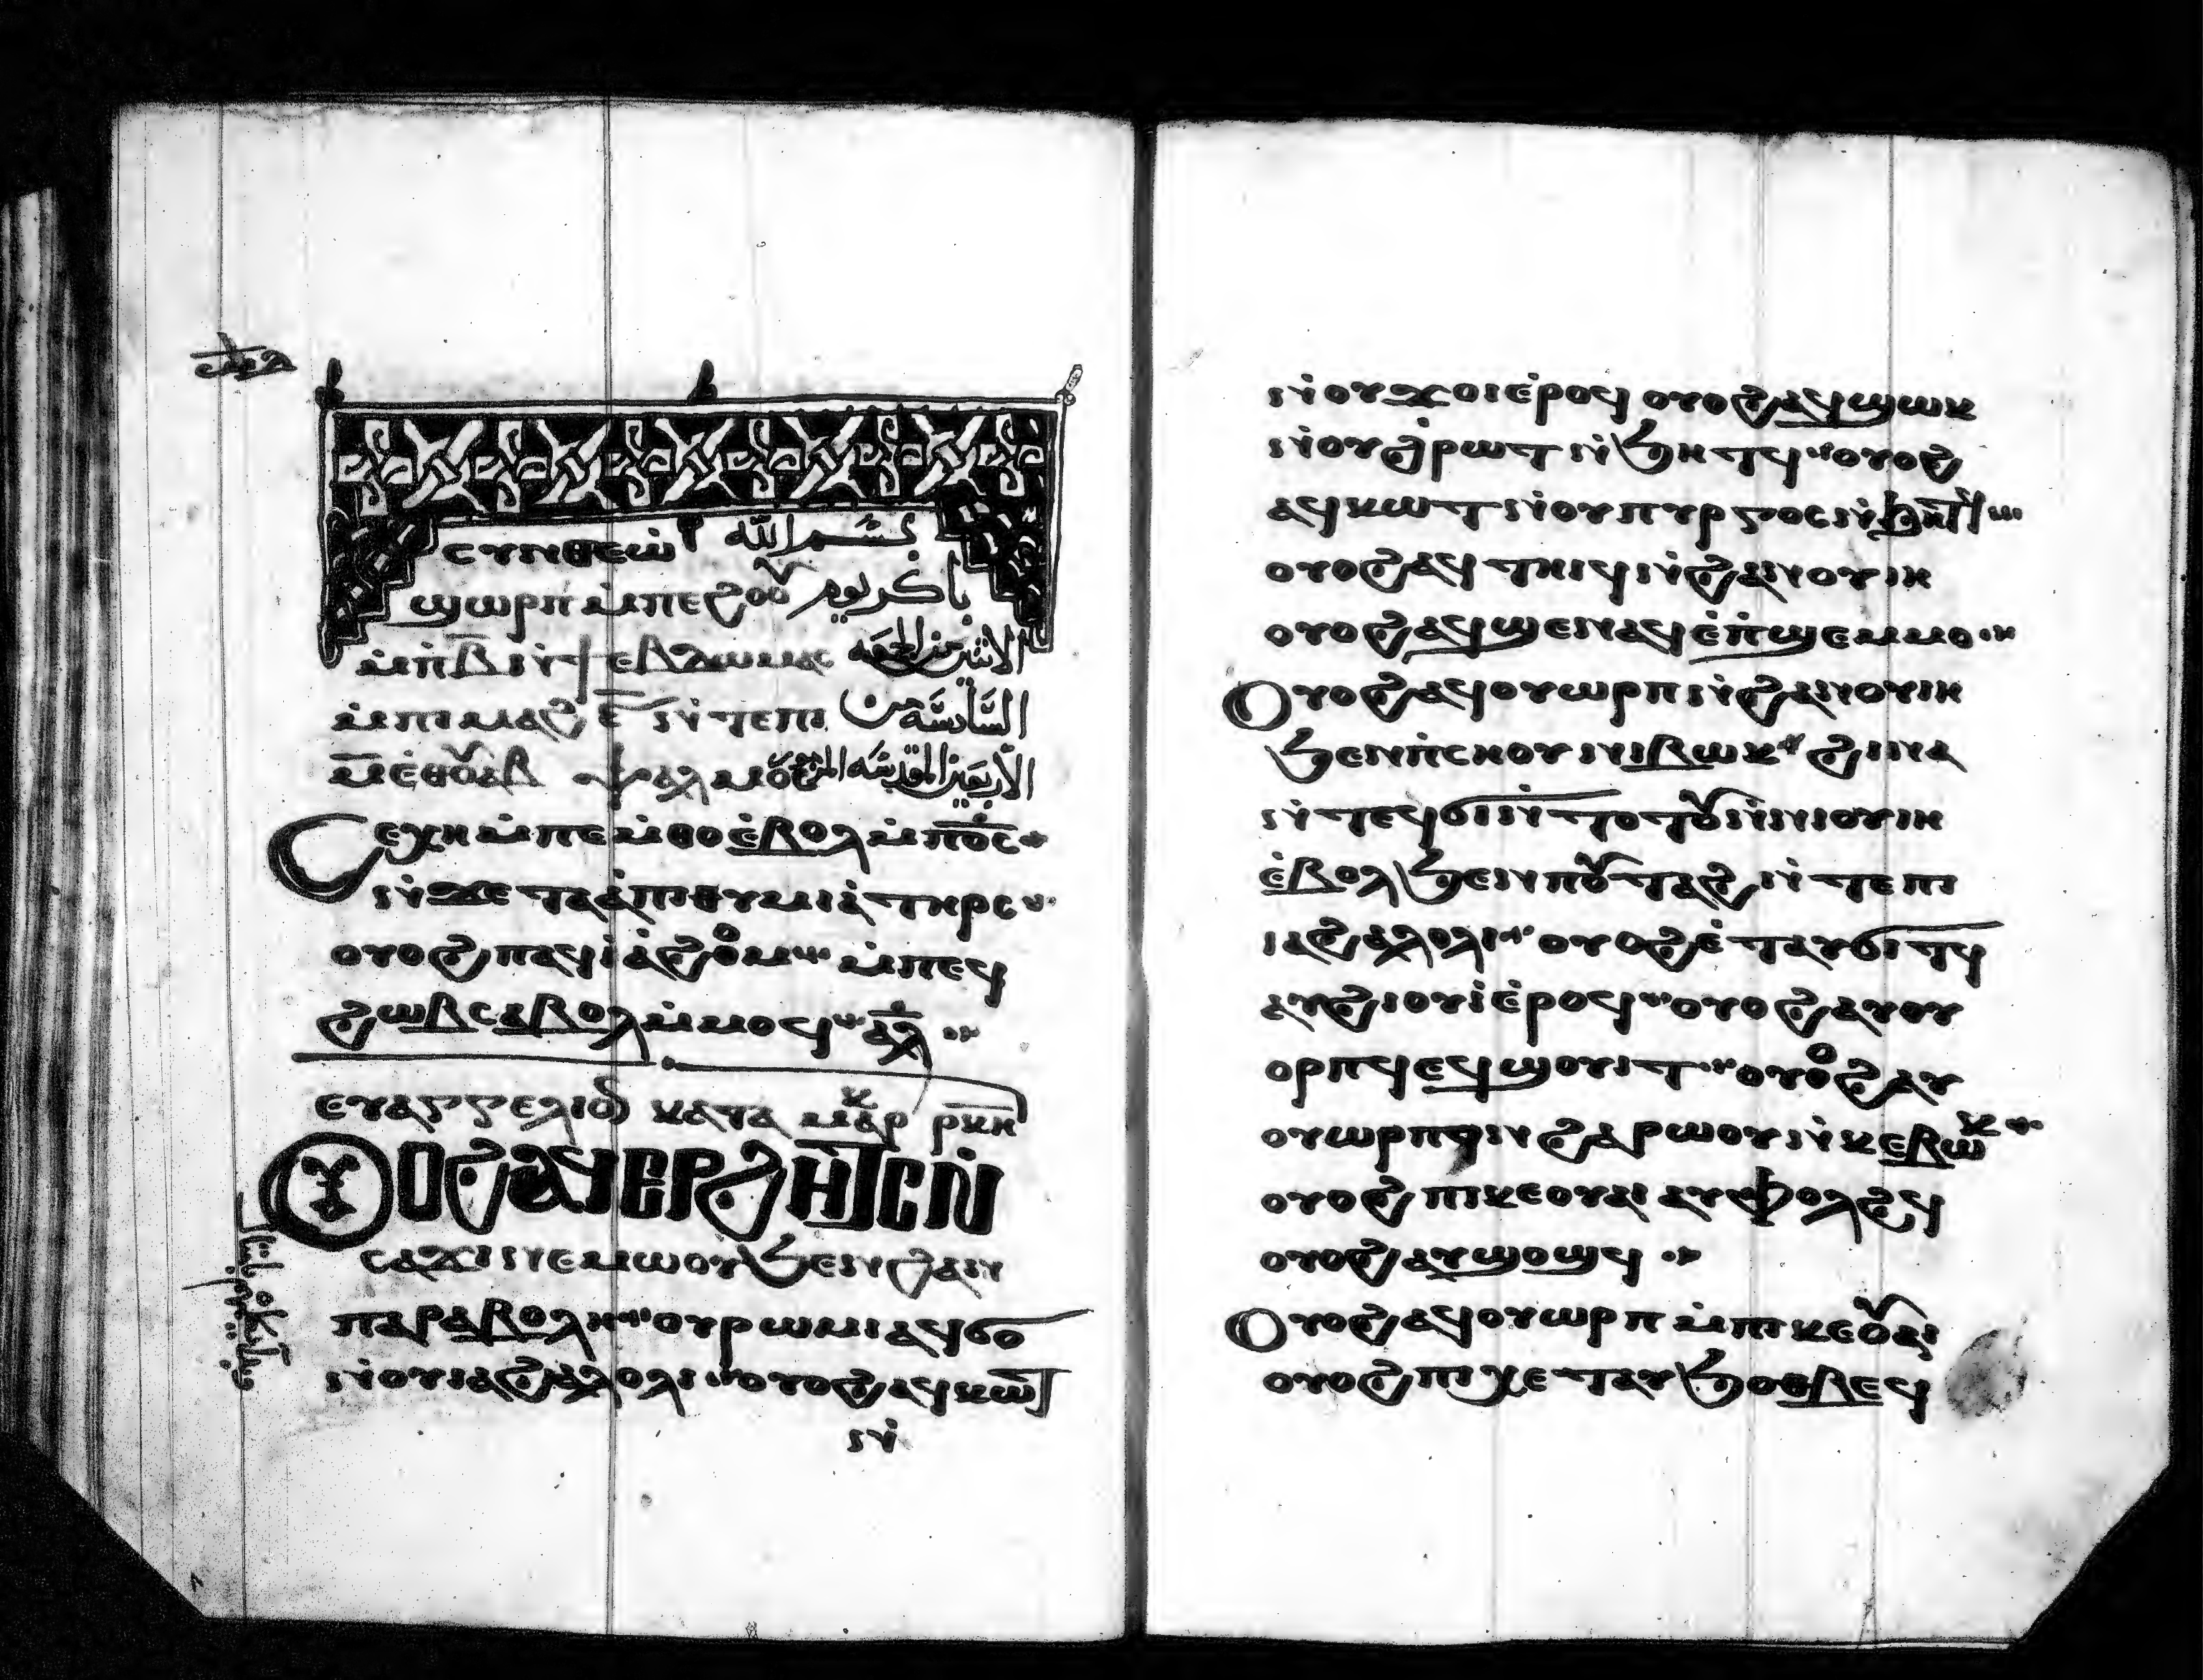 ⲥⲩⲛⲑⲉⲱ̀ بسم الله
ϣⲱⲣⲡ ⲙ̀ⲡⲉϩⲟⲟⲩ باكر يوم
ⲙ̀ⲡ̀ⲃ̅ ⲛ̀ϯⲉⲃⲇⲱⲙⲁⲥ الاثنين من الجمعة
ⲙ̀ⲡⲓⲙⲁϩ ⲋ̅ ⲛ̀ⲧⲉⲡⲓ السَّادسَّة من
ⲙ̅ ⲉ̀ⲑⲟⲩⲁⲃ ⲯⲁⲗⲙⲟⲥ الأربعين المقدسَّة المزمور
Ⲥⲉⲭⲏ ⲙ̀ⲡⲉⲙ̀ⲑⲟ ⲉ̀ⲃⲟⲗ ⲙ̀ⲡⲟ̅ⲥ̅
ⲛ̀ϫⲉ ⲧⲁⲉ̀ⲡⲓⲑⲩⲙⲓⲁ̀ ⲧⲏⲣⲥ
ⲟⲩⲟϩ ⲡⲁϥⲓ̀ⲁ̀ϩⲟⲙ ⲙ̀ⲡⲉϥ
ϩⲱⲃⲥ ⲁⲃⲟⲗ ⲙ̀ⲙⲟϥ ⲁ̅ⲗ̅
ⲉⲩⲁⲅⲅⲉⲗⲓⲟⲛ ⲕⲁⲧⲁ ⲙⲁⲣⲕ ⲣ̅ⲕ̅ⲏ̅
ⲞⲨⲞϨ ⲀϤⲈⲢϨⲎⲦⲤ Ⲛ̀
ⲥⲁϫⲓ ⲛⲉⲙⲱⲟⲩ ϧⲉⲛ ϩⲁⲛ
ⲡⲁⲣⲁⲃⲟⲗⲏ ⲟⲩⲣⲱⲙⲓ ⲁϥϭⲟ
ⲛ̀ⲟⲩⲓⲁϩⲁⲗⲟⲗⲓ ⲟⲩⲟϩ ⲁϥⲕⲱϯ
ⲛ̀
ⲛ̀ⲟⲩϫⲟⲓ ⲉ̀ⲣⲟϥ ⲟⲩⲟϩ ⲁϥϣⲱⲕ
ⲛ̀ⲟⲩϩ̀ⲣⲱⲧ ⲛ̀ϧⲏⲧϥ ⲟⲩⲟϩ
ⲁϥⲕⲱⲧ ⲛ̀ⲟⲩⲡⲩⲣⲅⲟⲥ ⲛ̀ϧⲏⲧϥ
ⲟⲩⲟϩ ⲁϥⲧⲏⲓϥ ⲛ̀ϩⲁⲛⲟⲩⲓⲏ
ⲟⲩⲟϩ ⲁϥϣⲉⲛⲁϥ ⲉ̀ⲡ̀ϣⲉⲙⲙⲟ
Ⲟⲩⲟϩ ⲁϥⲟⲩⲱⲣⲡ ⲛ̀ϩⲁⲛⲟⲩⲓⲏ
ϧⲉⲛ ⲡ̀ⲥⲏⲟⲩ ⲛⲓⲃⲱⲕ ϩⲓⲛⲁ
ⲛ̀ⲧⲉϥϭⲓ ⲛ̀ⲧⲟⲧⲟⲩ ⲛ̀ⲛⲓⲟⲩⲓⲏ
ⲉ̀ⲃⲟⲗ ϧⲉⲛ ⲡⲟⲩⲧⲁϩ ⲛ̀ⲧⲉ ⲡⲓ
ⲓⲁϩⲁⲗⲟⲗⲓ ⲟⲩⲟϩ ⲉ̀ⲧⲁⲩϭⲓⲧϥ
ⲁⲩϩⲓⲟⲩⲓ̀ ⲉ̀ⲣⲟϥ ⲟⲩⲟϩ ⲁⲩⲟⲩ
ⲟⲣⲡϥ ⲉϥϣⲟⲩⲓⲧ ⲟⲩⲟϩ ⲁⲩ
ⲟⲩⲱⲣⲡ ⲛ̀ϩⲁⲣⲱⲟⲩ ⲛ̀ⲕⲉⲃⲱⲕ
ⲟⲩⲟϩ ⲡⲓⲕⲉⲟⲩⲁⲓ ⲁⲩⲫⲟⲗϩϥ
ⲟⲩⲟϩ ⲁⲩϣⲟϣϥ
Ⲟⲩⲟϩ ⲁϥⲟⲩⲱⲣⲡ ⲙ̀ⲡⲓⲕⲉⲟⲩⲁⲓ
ⲟⲩⲟϩ ⲡⲓⲭⲉⲧ ⲁⲩϧⲟⲑⲃⲉϥ